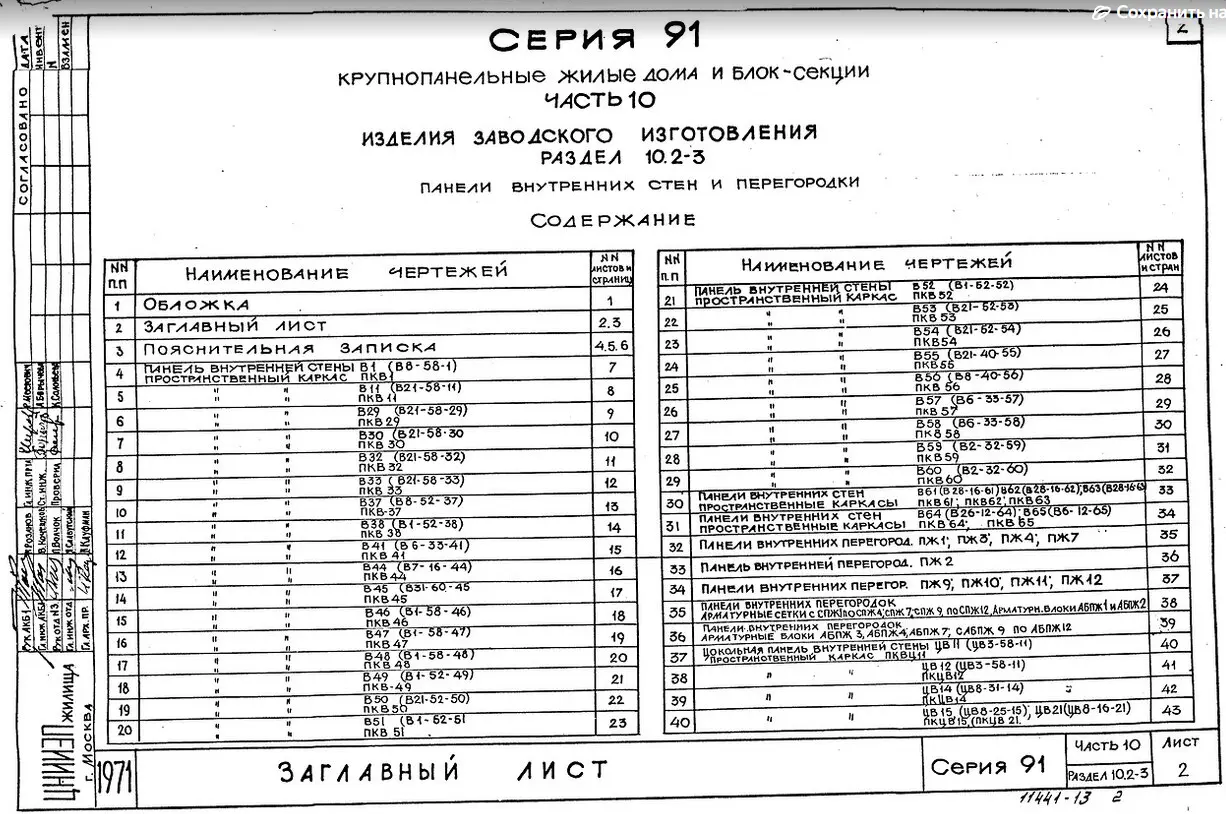 Сохранить на
2
СЕРИЯ 91
КРУПНОПАНЕЛЬНЫЕ ЖИЛЫЕ ДОМА И БЛОК-СЕКЦИИ
ЧАСТЬ 10
ИЗДЕЛИЯ ЗАВОДСКОГО ИЗГОТОВЛЕНИЯ
РАЗДЕЛ 10.2-3
ПАНЕЛИ ВНУТРЕННИХ СТЕН И ПЕРЕГОРОДКИ
СОДЕРЖАНИЕ
NN П.П НАИМЕНОВАНИЕ ЧЕРТЕЖЕЙ NN ЛИСТОВ И СТРАНИЦ
1 ОБЛОЖКА 1
2 ЗАГЛАВНЫЙ ЛИСТ 2.3
3 ПОЯСНИТЕЛЬНАЯ ЗАПИСКА 4.5.6
4 ПАНЕЛЬ ВНУТРЕННЕЙ СТЕНЫ В1 (В8-58-1) 7
ПРОСТРАНСТВЕННЫЙ КАРКАС ПКВ1
5 " " В11 (В21-58-11) 8
ПКВ 11
6 " " В29 (В21-58-29) 9
ПКВ 29
7 " " В30 (В21-58-30 10
ПКВ 30
8 " " В32 (В21-58-32) 11
ПКВ 32
9 " " В33 (В21-58-33) 12
ПКВ 33
10 " " В37 (В8-52-37) 13
ПКВ-37
11 " " В38 (В1-52-38) 14
ПКВ 38
12 " " В41 (В6-33-41) 15
ПКВ 41
13 " " В44 (В7-16-44) 16
ПКВ 44
14 " " В45 (В31-60-45 17
ПКВ 45
15 " " В46 (В1-58-46) 18
ПКВ 46
16 " " В47 (В1-58-47) 19
ПКВ 47
17 " " В48 (В1-58-48) 20
ПКВ 48
18 " " В49 (В1-52-49) 21
ПКВ-49
19 " " В50 (В21-52-50) 22
ПКВ 50
20 " " В51 (В1-52-51 23
ПКВ 51
NN П.П НАИМЕНОВАНИЕ ЧЕРТЕЖЕЙ NN ЛИСТОВ И СТРАН
21 ПАНЕЛЬ ВНУТРЕННЕЙ СТЕНЫ В52 (В1-52-52) 24
ПРОСТРАНСТВЕННЫЙ КАРКАС ПКВ 52
22 " " В53 (В21-52-53) 25
ПКВ 53
23 " " В54 (В21-52-54) 26
ПКВ54
24 " " В55 (В21-40-55) 27
ПКВ55
25 " " В56 (В8-40-56) 28
ПКВ 56
26 " " В57 (В6-33-57) 29
ПКВ 57
27 " " В58 (В6-33-58) 30
ПКВ 58
28 " " В59 (В2-32-59) 31
ПКВ 59
29 " " В60 (В2-32-60) 32
ПКВ 60
30 ПАНЕЛИ ВНУТРЕННИХ СТЕН В61(В28-16-61) В62(В28-16-62); В63(В28-16-6 33
ПРОСТРАНСТВЕННЫЕ КАРКАСЫ ПКВ61; ПКВ62; ПКВ63
31 ПАНЕЛИ ВНУТРЕННИХ СТЕН В64(В26-12-64); В65(В6-12-65) 34
ПРОСТРАНСТВЕННЫЕ КАРКАСЫ ПКВ64; ПКВ 65
32 ПАНЕЛИ ВНУТРЕННИХ ПЕРЕГОРОД. ПЖ1; ПЖ3; ПЖ4; ПЖ7 35
33 ПАНЕЛЬ ВНУТРЕННЕЙ ПЕРЕГОРОД. ПЖ 2 36
34 ПАНЕЛИ ВНУТРЕННИХ ПЕРЕГОР. ПЖ9; ПЖ10; ПЖ11; ПЖ12 37
35 ПАНЕЛИ ВНУТРЕННИХ ПЕРЕГОРОДОК 38
АРМАТУРНЫЕ СЕТКИ С СПЖ1 ПО СПЖ4; СПЖ7; СПЖ 9, ПО СПЖ12, АРМАТУРН. БЛОКИ АБПЖ1 И АБПЖ2
36 ПАНЕЛИ ВНУТРЕННИХ ПЕРЕГОРОДОК 39
АРМАТУРНЫЕ БЛОКИ АБПЖ 3, АБПЖ4, АБПЖ7; С АБПЖ 9 ПО АБПЖ12
37 ЦОКОЛЬНАЯ ПАНЕЛЬ ВНУТРЕННЕЙ СТЕНЫ ЦВ 11 (ЦВ3-58-11) 40
ПРОСТРАНСТВЕННЫЙ КАРКАС ПКВЦ11
38 " " ЦВ12 (ЦВ3-58-11) 41
ПКЦВ12
39 " " ЦВ14 (ЦВ8-31-14) 42
ПКЦВ14
40 " " ЦВ15 (ЦВ8-25-15), ЦВ21(ЦВ8-16-21) 43
ПКЦВ15, (ПКЦВ 21.
СОГЛАСОВАНО
ДАТА
ЦНИИЭП ЖИЛИЩА
Г. МОСКВА
1971 ЗАГЛАВНЫЙ ЛИСТ
СЕРИЯ 91
ЧАСТЬ 10
РАЗДЕЛ 10.2-3
ЛИСТ
2
11441-13 2